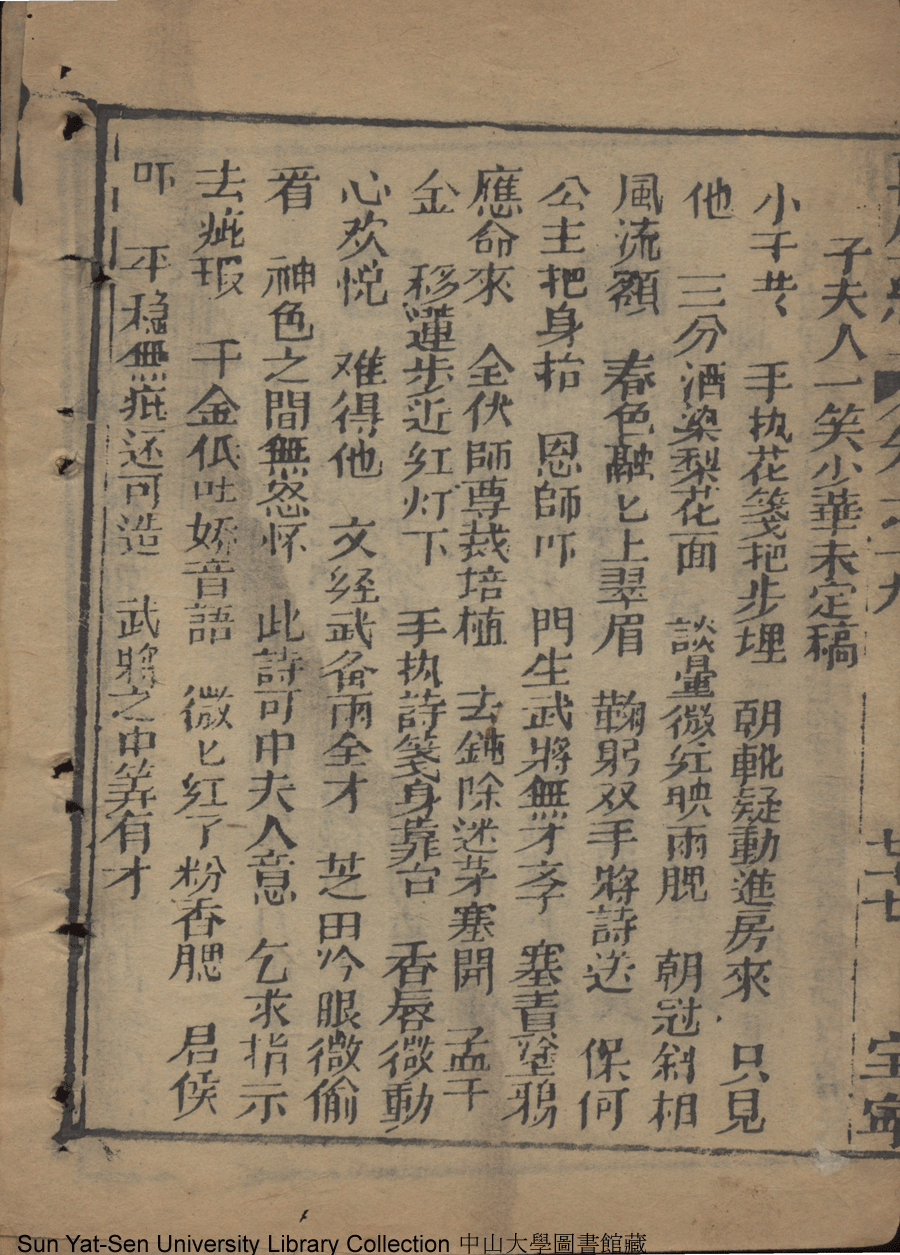 子夫人一笑少華未定稿
小子艹〻 手执花箋把步埋 朝靴疑動進房來 只見
他 三分洒染梨花面 談暈微红映雨腮 朝冠斜相
風流額 春色融匕上翠眉 鞠躬双手將詩送 保何
公主把身抬 恩師吓 門生武將無才李 塞責塗鴉
應命來 全伏師尊裁培植 去鈍除迷茅塞開 孟千
金 移蓮步近红灯下 手执詩箋身靠台 香唇微動
心欢悦 难得他 文经武备兩全才 芝田吟眼微偷
看 神色之間無忿怀 此詩可中夫人意 乞求指示
去疵瑕 千金低吐娇音語 微匕红了粉香腮 君侯
吓 平稳無疵还可造 武將之中筭有才
廿七
Sun Yat-Sen University Library Collection 中山大學圖書館藏